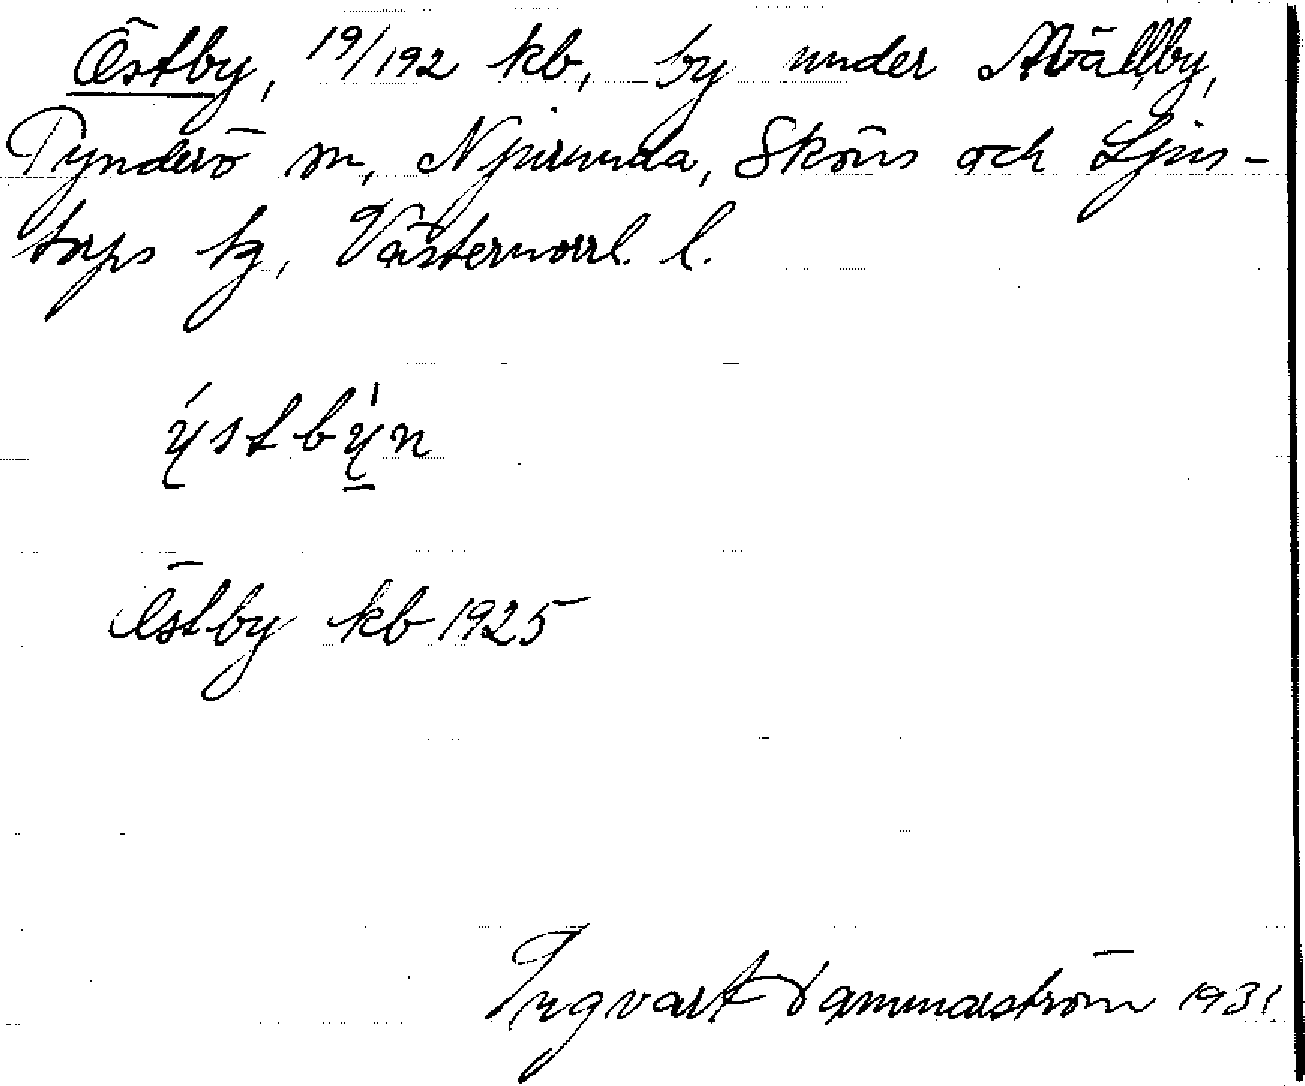 Östby, 19/192 kb, by under Mällby,
Tynderö sn, Njurunda, Sköns och Ljus-
torps tg, Västernorrl. l.
ýstbýn
Östby kb 1925
Ingvart Dammarström 1931